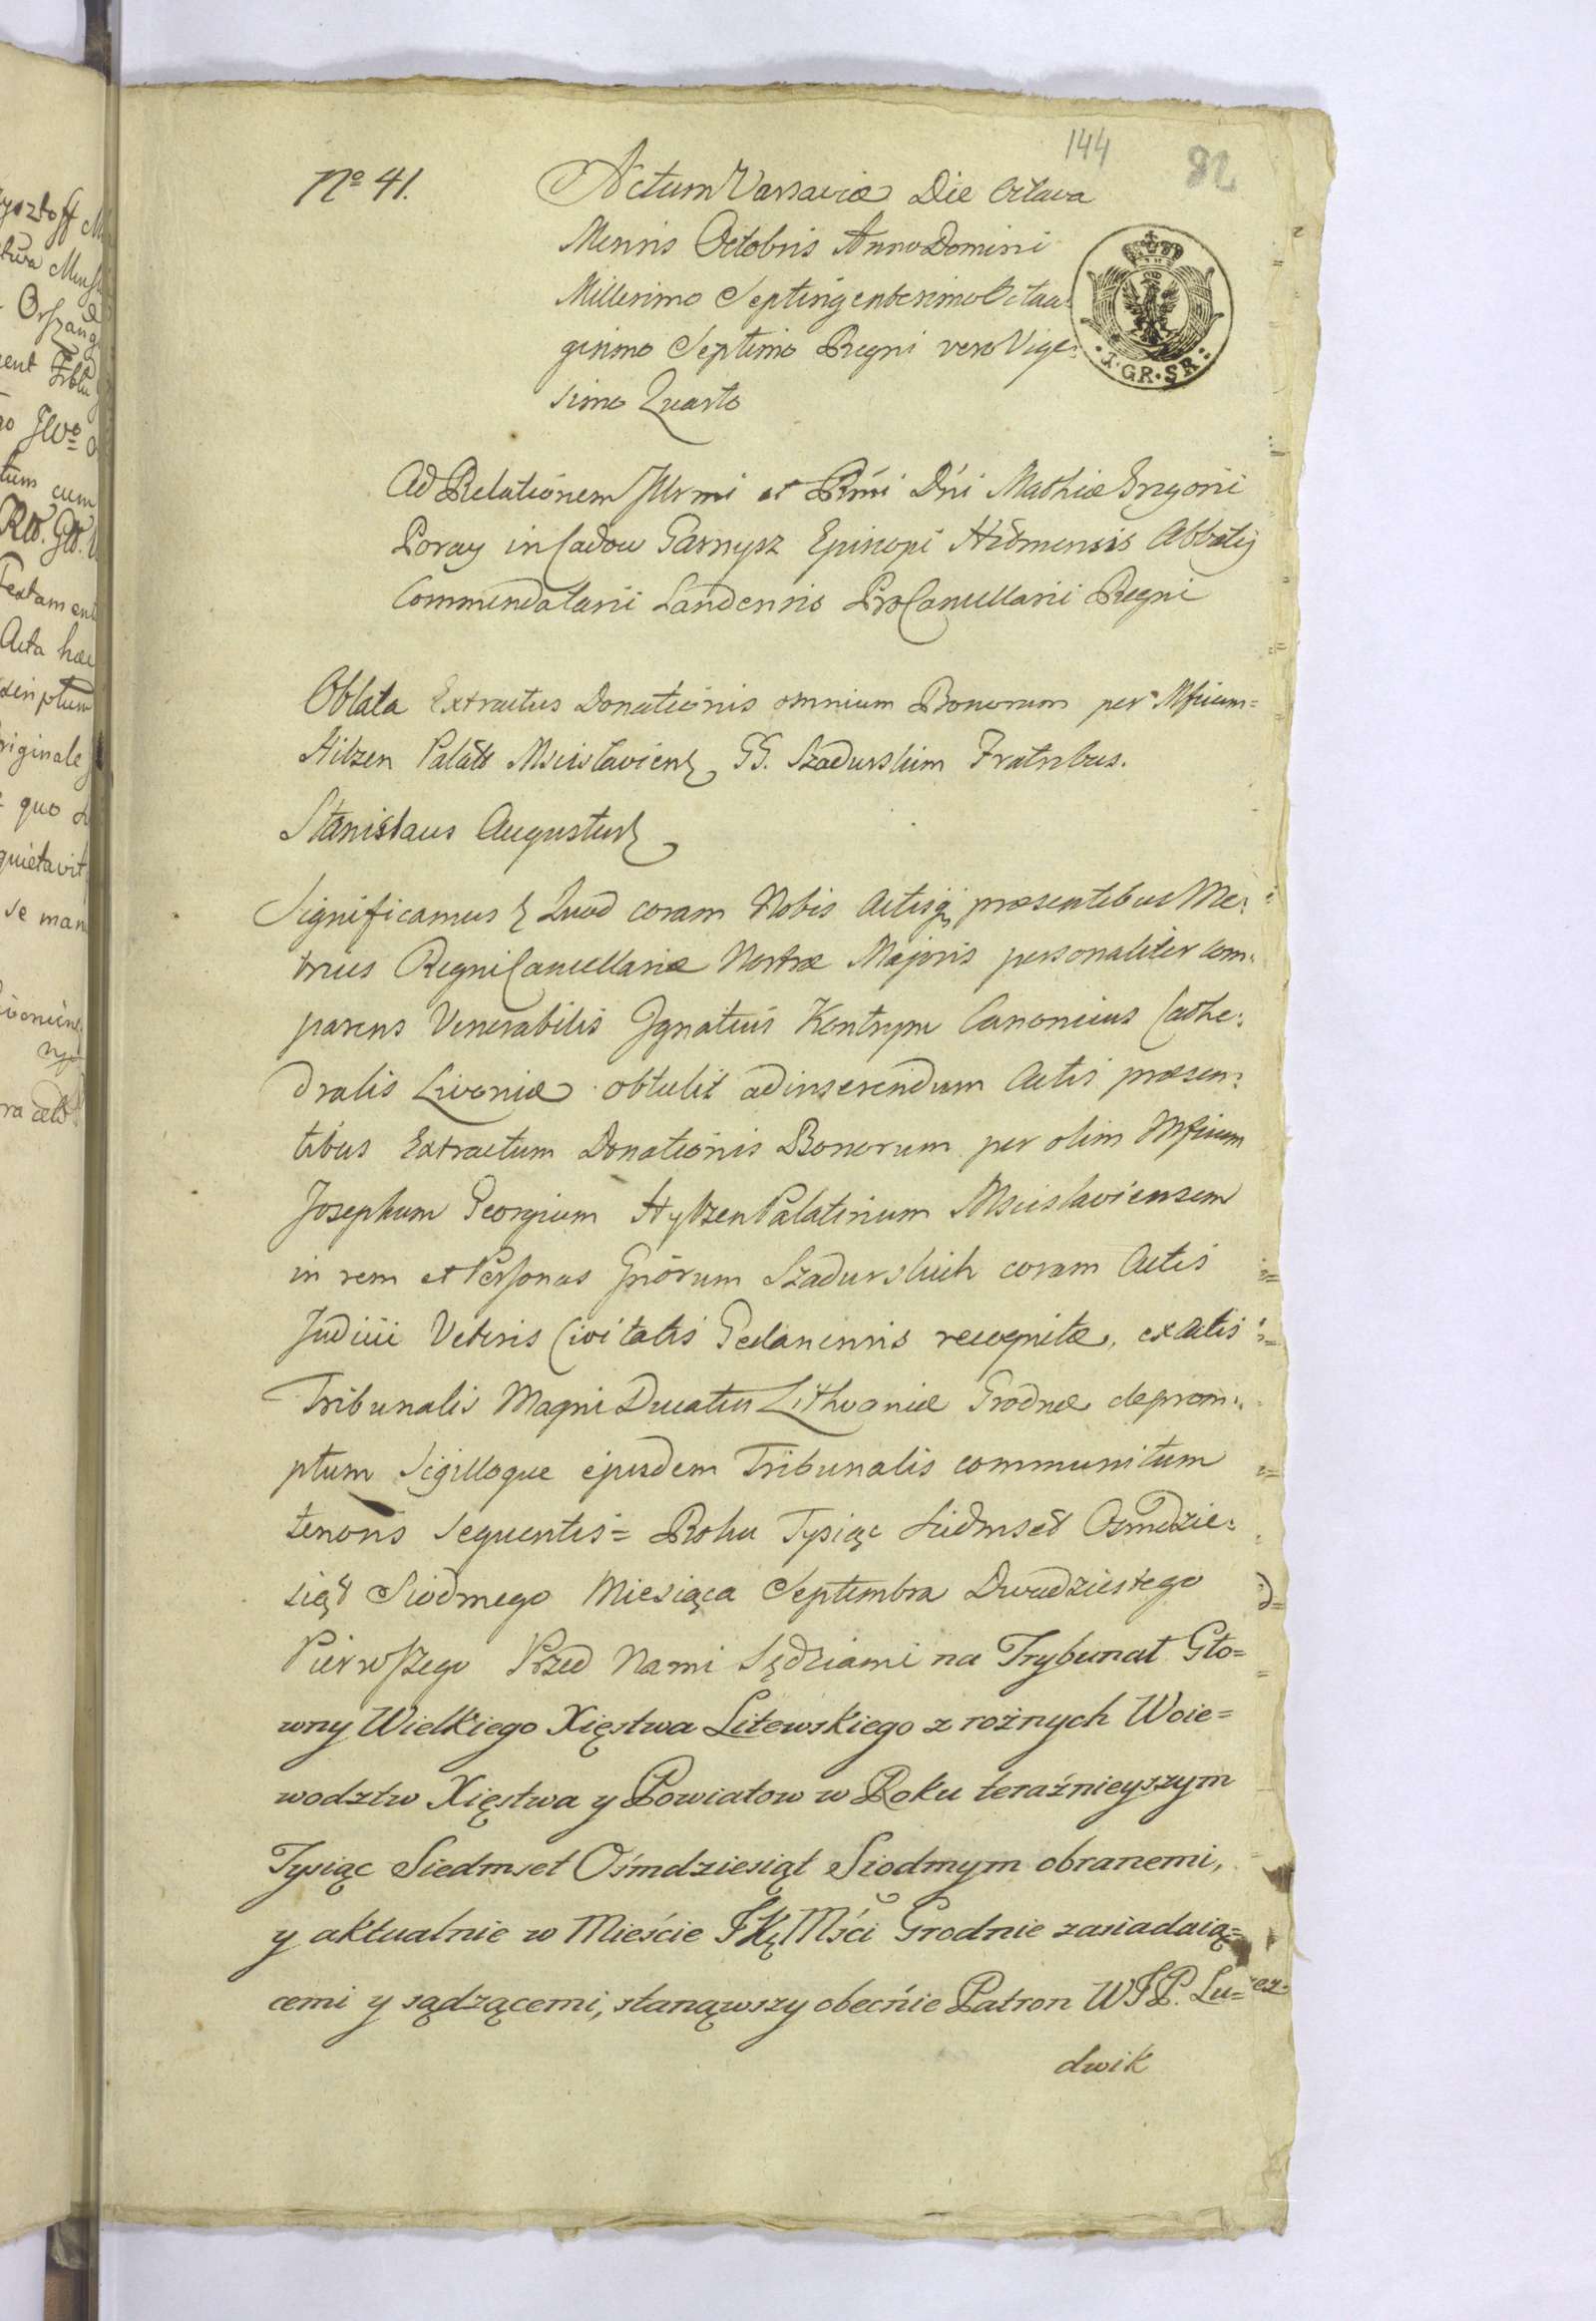 144
82
No 41.
Actum Varsaviæ Die Octava
Mensis Octobris Anno Domini
Millesimo Septingentesimo Octua:
gesimo Septimo Regni vero Vige:
simo Quarto
1·GR·SR·
Ad Relationem Illrmi et Rmi Dni Mathiæ Grzgorii
Poray in Cadow Garnysz Episcopi Chełmensis Abbatis
Commendatarii Landensis ProCancellarii Regni
Oblata Extractus Donationis omnium Bonorum per Mficum=
Hilzen Palatt Mscislaviens GG. Szadurskim Fratribus.
Stanislaus Augustus
Significamus Quod coram Nobis Actisq præsentibus Me:
trices Regni Cancellariæ Nostræ Majoris personaliter com:
parens Venerabilis Ignatius Kontrym Canonicus Cathe:
dralis Livoniæ obtulit ad inserendum Actis præsen:
tibus Extractum Donationis Bonorum per olim Mficum
Josephum Georgium Hylzen Palatinum Mscislaviensem
in rem et Personas Gnorum Szadurskich coram Actis
Judicii Veteris Civitatis Gedanensis recognitæ, ex Actis
Tribunalis Magni Ducatus Lithvaniæ Grodnæ deprom:
ptum Sigilloque ejusdem Tribunalis communitum
tenoris sequentis= Roku Tysiąc Siedmset Osmdzie:
siąt Siodmego Miesiąca Septembra Dwudziestego
Pierwszego Przed Nami Sędziami na Trybunał Gło=
wny Wielkiego Xięstwa Litewskiego z rożnych Woie=
wodztw Xięstwa y Powiatow w Roku teraźnieyszym
Tysiąc Siedmset Ośmdziesiąt Siodmym obranemi,
y aktualnie w Mieście JKMści Grodnie zasiadaią=
cemi y sądzącemi, stanąwszy obecńie Patron WJP. Lu=
dwik